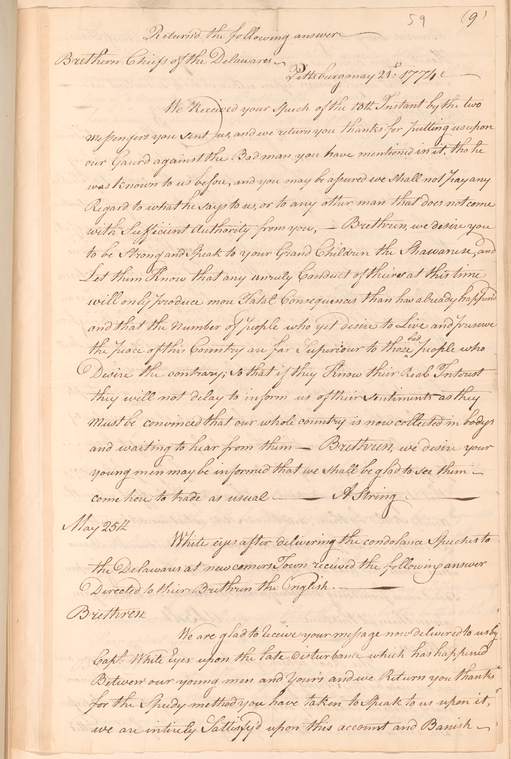 59 (9)
Returned the following answer
Brethern Chiefs of the Delawares
Pittsburg may 21st 1774
We Received your Speech of the 18th Instant by the two
messengers you sent us, and we return you thanks for putting us upon
our Gaurd against the Bad man you have mentioned in it, tho he
was known to us before, and you may be assured we shall not pay any
Regard to what he says to us, or to any other man that does not come
with Suffecient Authority from you, — Brethren, we desire you
to be Strong and Speak to your Grand Children the Shawanese, and
Let them Know that any unruly Conduct of theirs at this time
will only produce more Fatal Consequences than has already happend
and that the Number of people who yet desire to Live and preserve
the peace of this Country are far Superiour to those bad people who
Desire the contrary; so that if they Know their Real Intrest
they will not delay to inform us of their Sentiments as they
must be convinced that our whole country is now collected in bodys
and waiting to hear from them — Brethren, we desire your
young men may be informed that we shall be glad to see them
come here to trade as usual — A String
May 25th
White eyes after delivering the condolance Speeches to
the Delawares at newcomers Town received the following answer
Directed to their Brethren the English.
Brethren
We are glad to receive your message now delivered to us by
Capt. White Eyes upon the late Disturbance which has happened
Between our young men and yours and we Return you thanks
for the Speedy method you have taken to Speak to us upon it,
we are intirely Sattisfyd upon this account and Banish